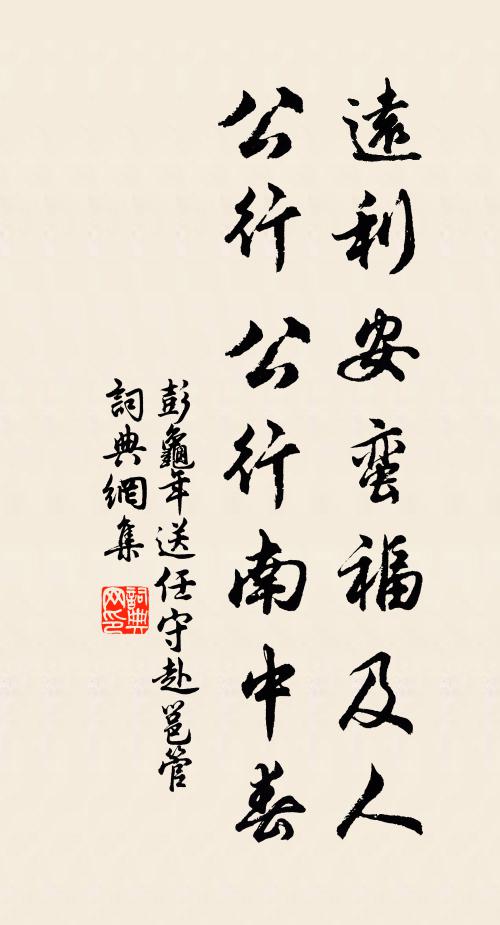 遠利安蛮福及人
公行公行南中春
彭龜年送任守赴邕管
詞典網集
詞典网印